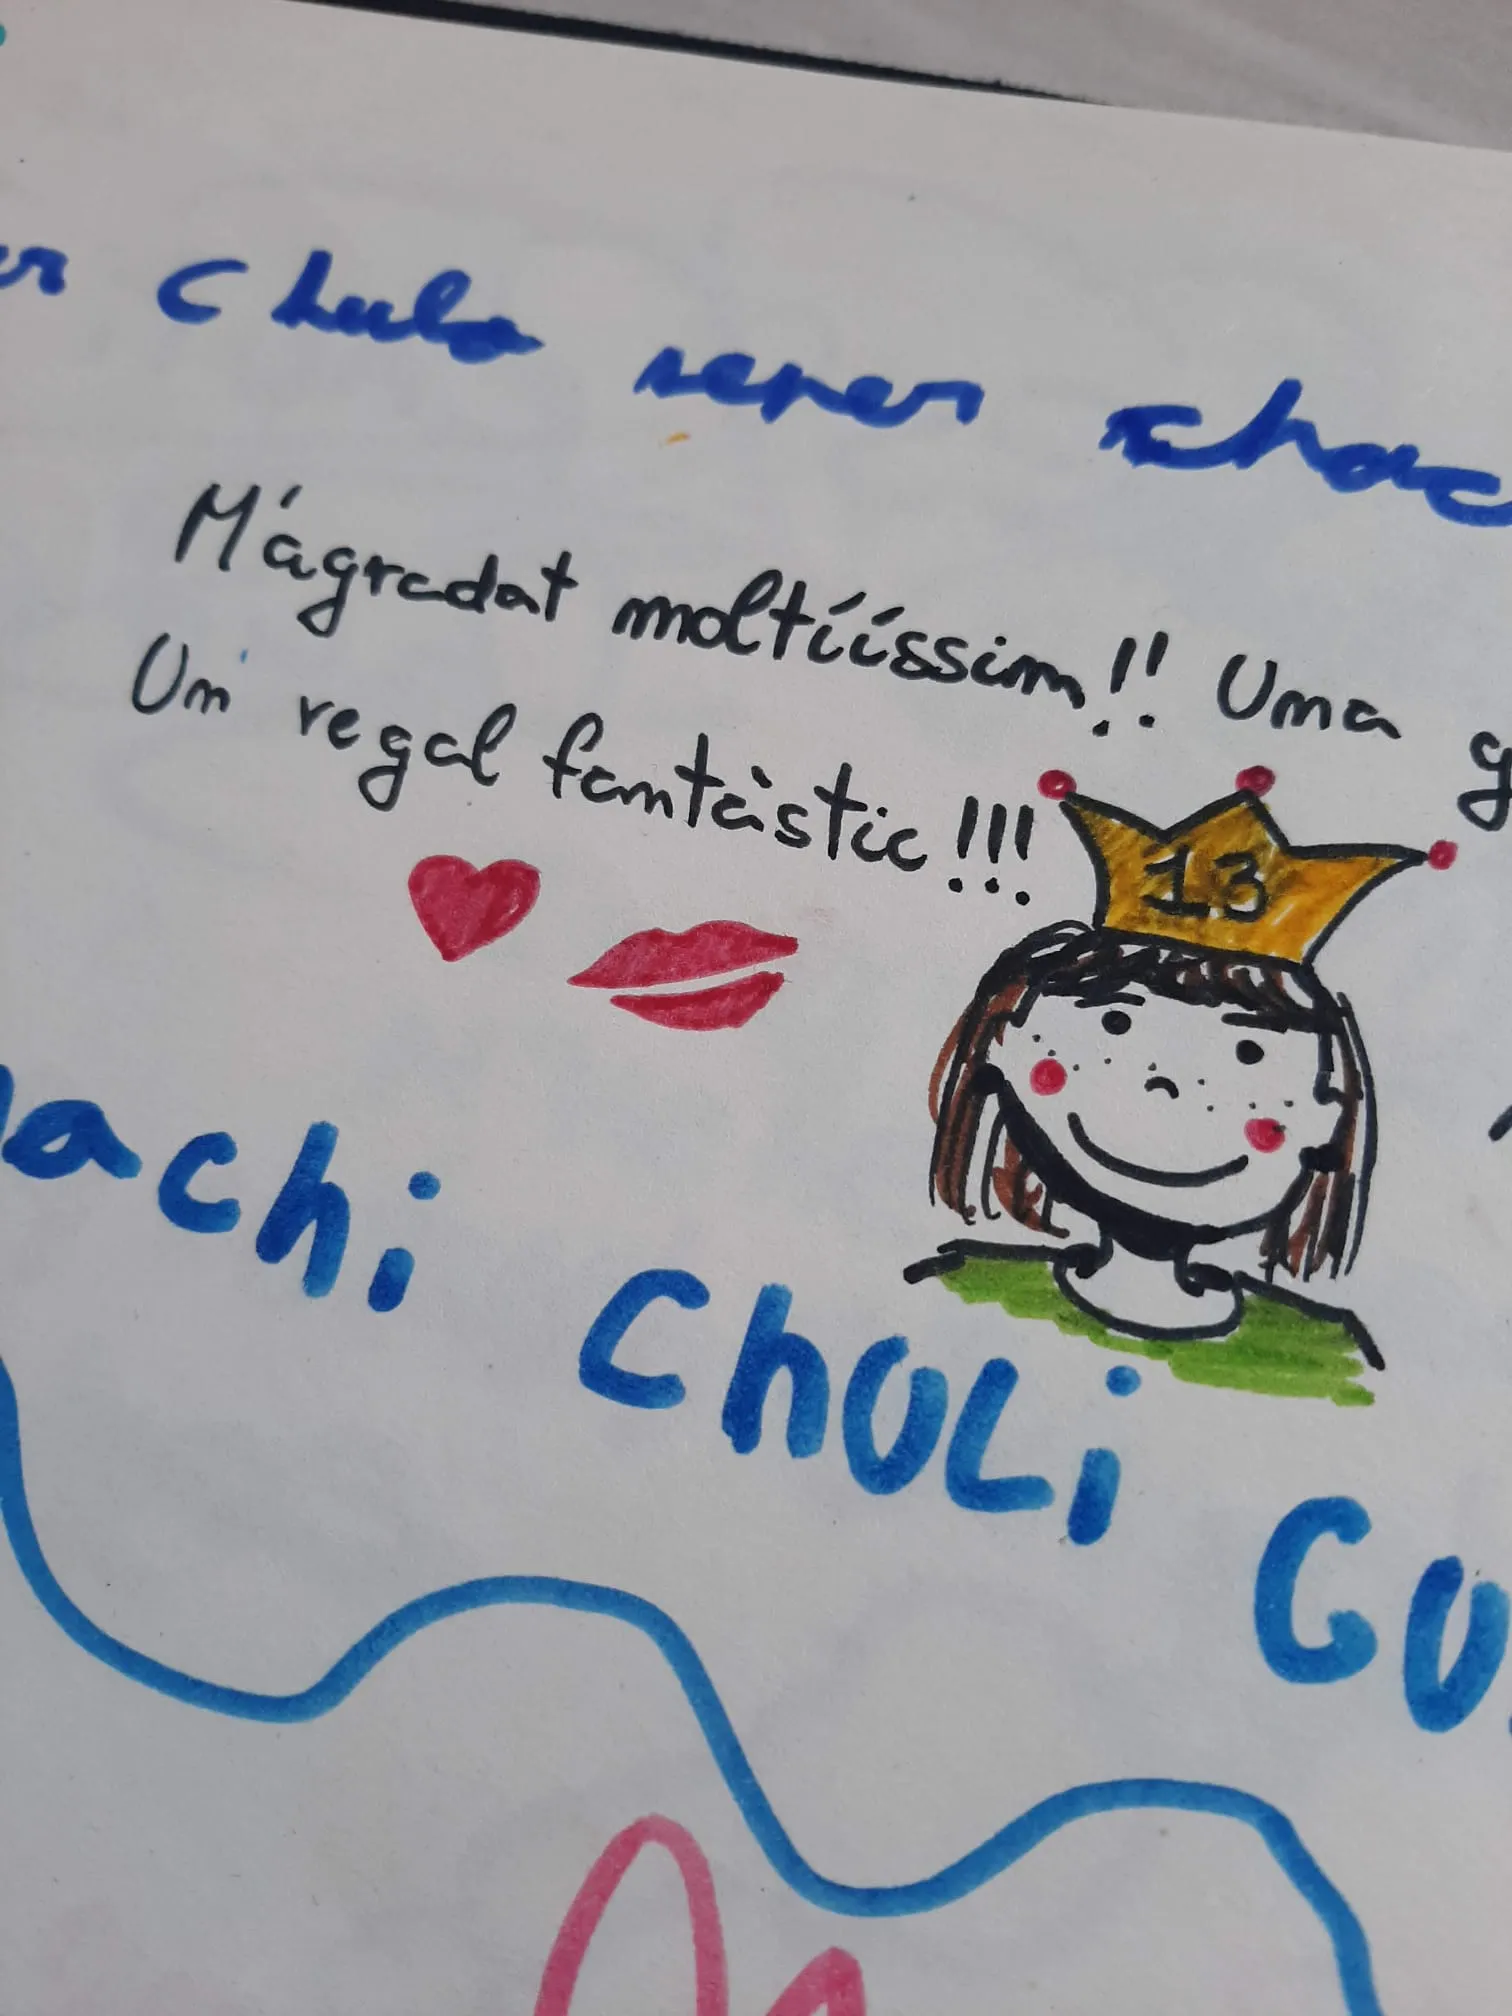 chulo super
M'agradat moltííssim!! Una
Un regal fantàstic!!!
13
achi CHULi